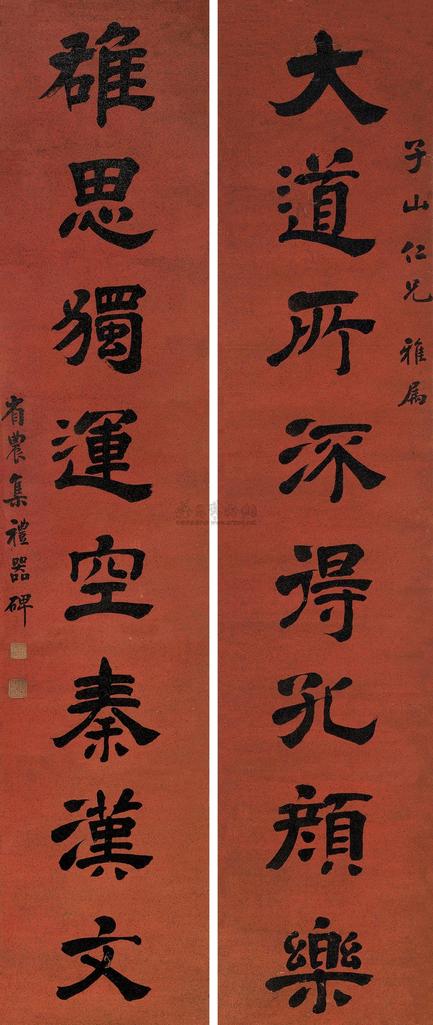 子山仁兄 雅属
大道所深得孔顏樂
雄思獨運空秦漢文
省農集禮器碑